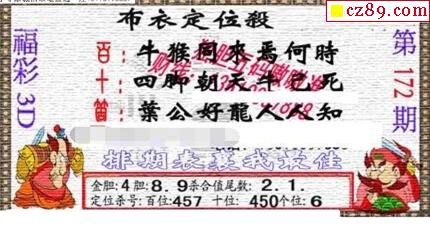 cz89.com
布衣定位殺
福彩3D
第172期
百 牛猴同來焉何時
十 四脚朝天牛已死
箇 葉公好龍人人知
排期表裏我最佳
金胆:4胆:8.9杀合值尾数:2.1.
定位杀号:百位:457 十位:450个位:6